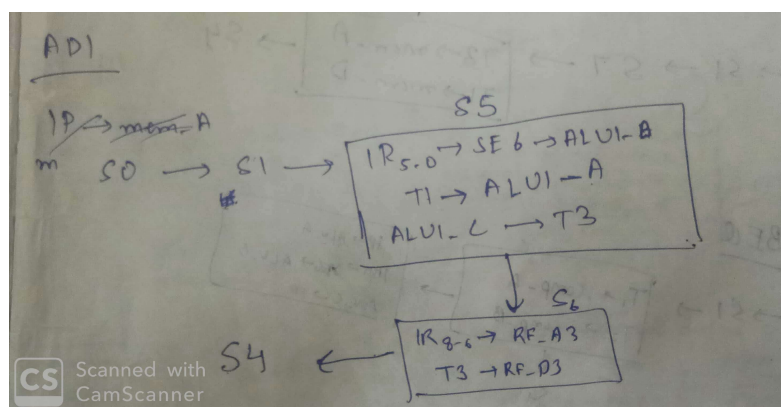 ADI
IP → mem-A
m
S0 → S1 →
S5
IR5-0 → SE6 → ALU1-B
T1 → ALU1-A
ALU1-C → T3
S6
IR8-6 → RF_A3
T3 → RF_D3
S4 ←
CS Scanned with
CamScanner